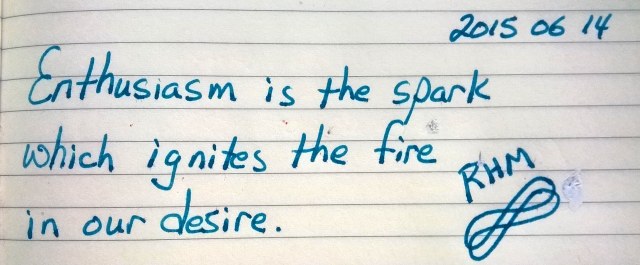 2015 06 14
Enthusiasm is the spark
which ignites the fire
in our desire.
RHM